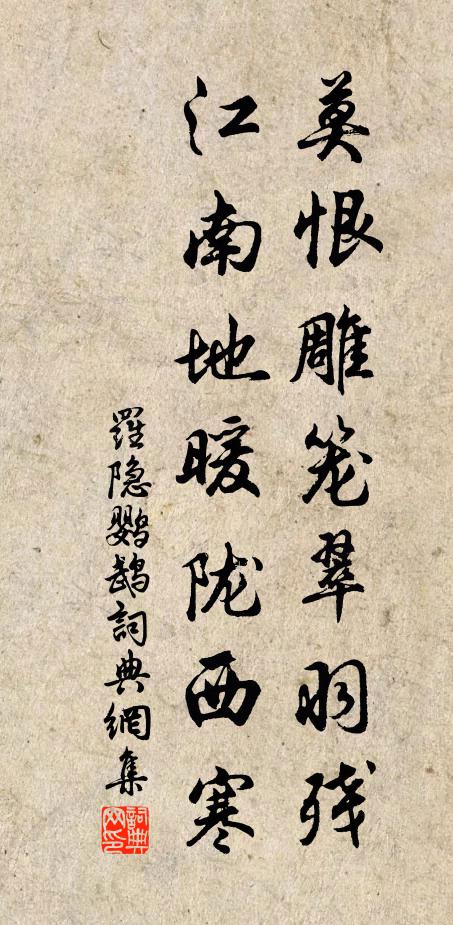 莫恨雕笼翠羽残
江南地暖陇西寒
羅隐鹦鹉詞典網集
詞典网印